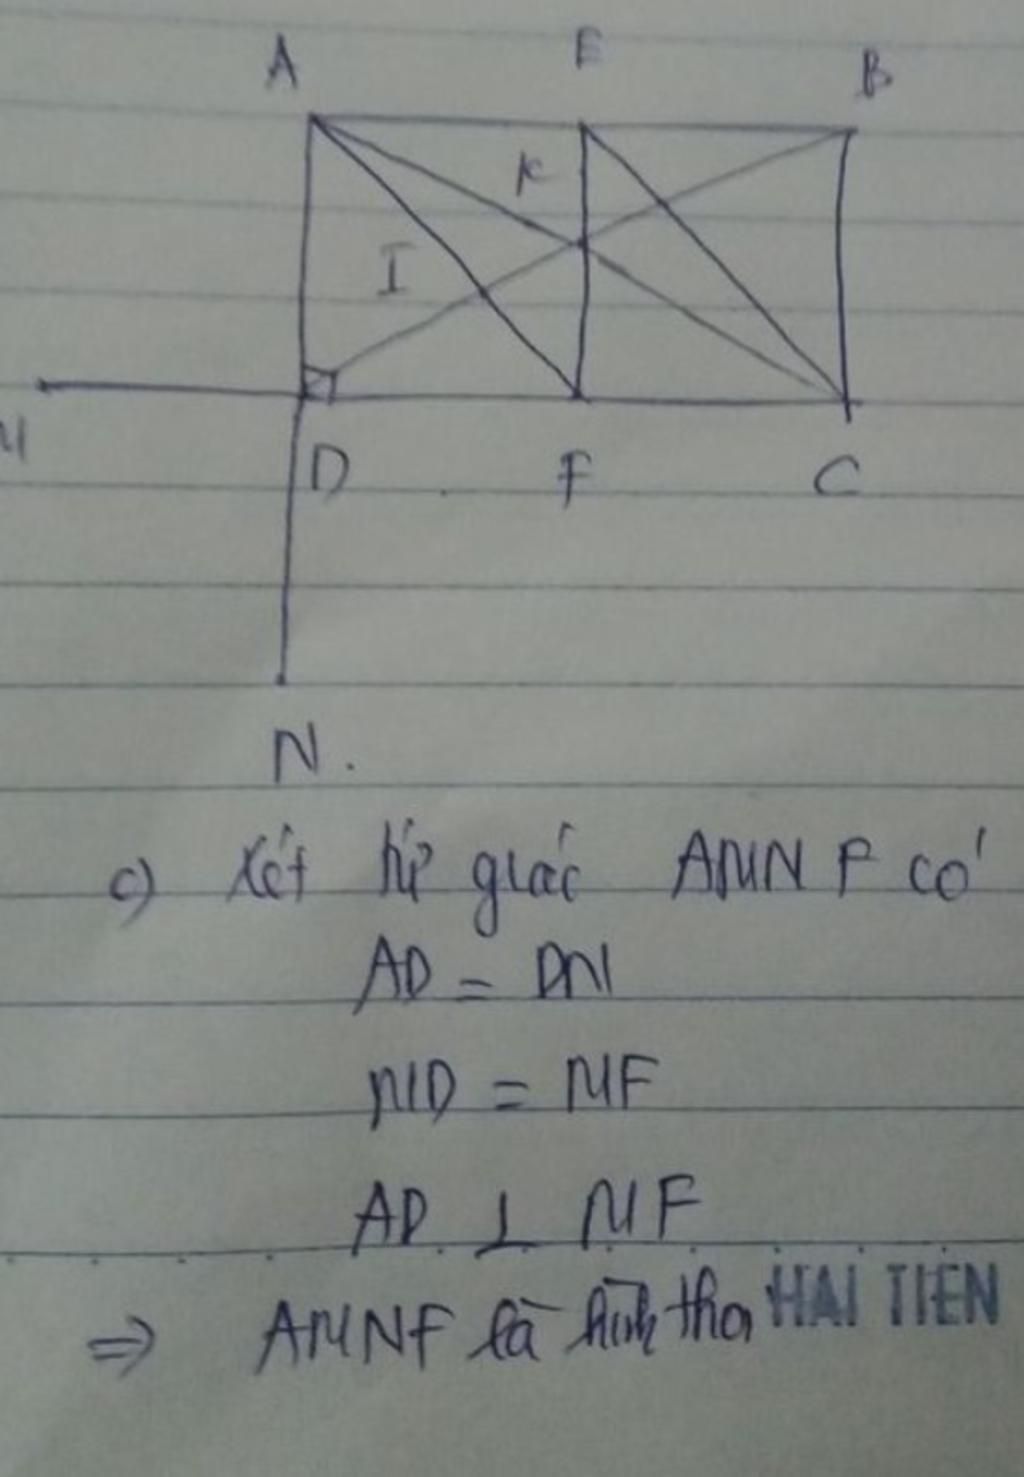 A E B
K
I
M
D F C
N.
c) Xét tứ giác AMNF có
AD = DN
MD = MF
AD ⊥ MF
=> AMNF là hình thoi HAI TIEN